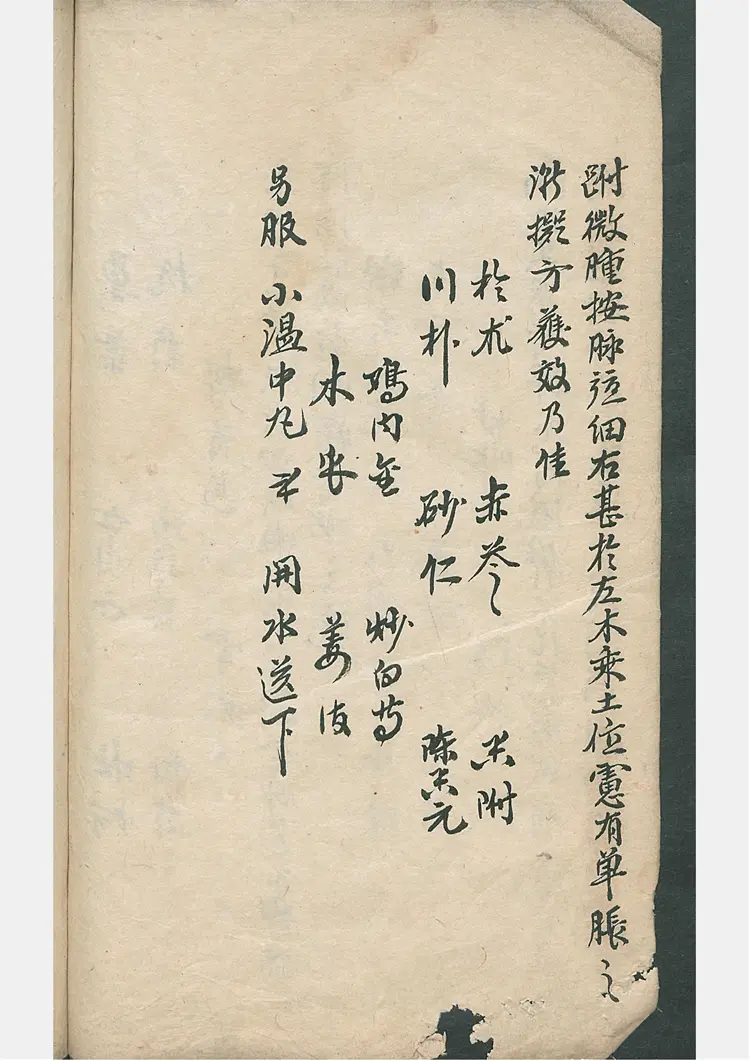 跗微腫按脉弦細右甚於左木乘土位慮有单脹之
漸擬方蔉效乃佳
於朮 赤苓 香附
川朴 砂仁 陳香元
鳮内金 炒白芍
木瓜 姜皮
另服 小温中丸 開水送下